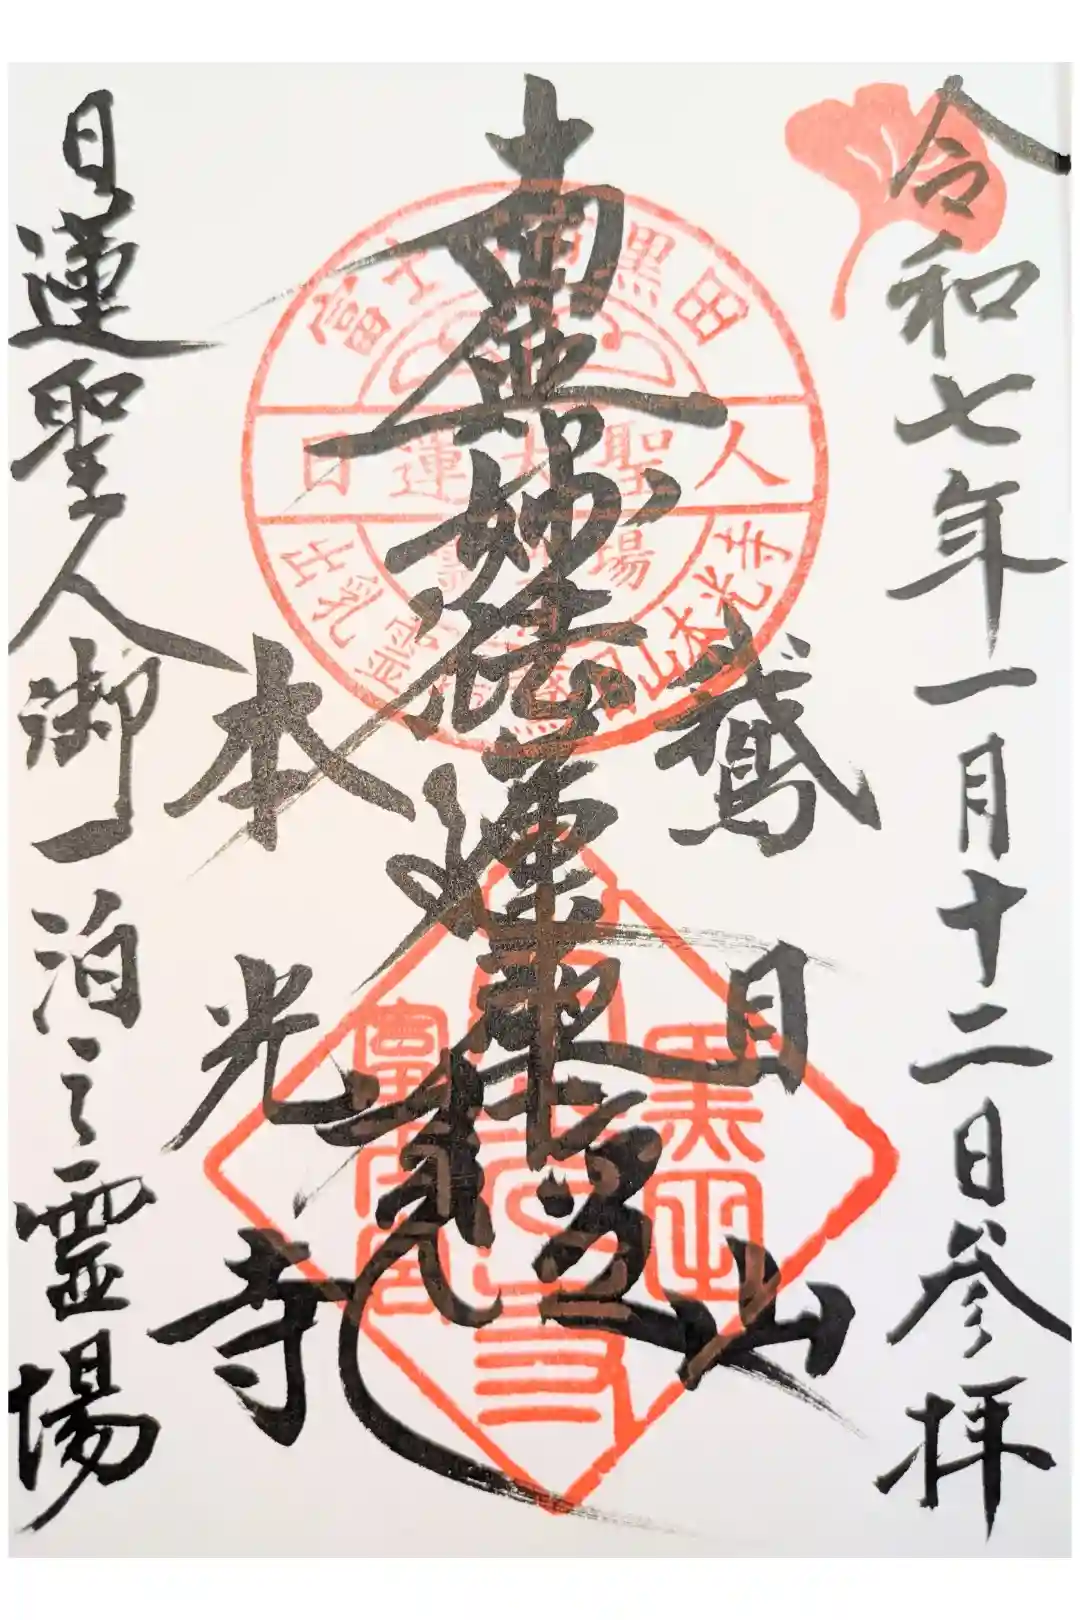 令和七年一月十二日参拝
鵞目山
南無妙法蓮華経
本光寺
日蓮聖人御一泊之霊場
富士宮市黒田
日蓮大聖人